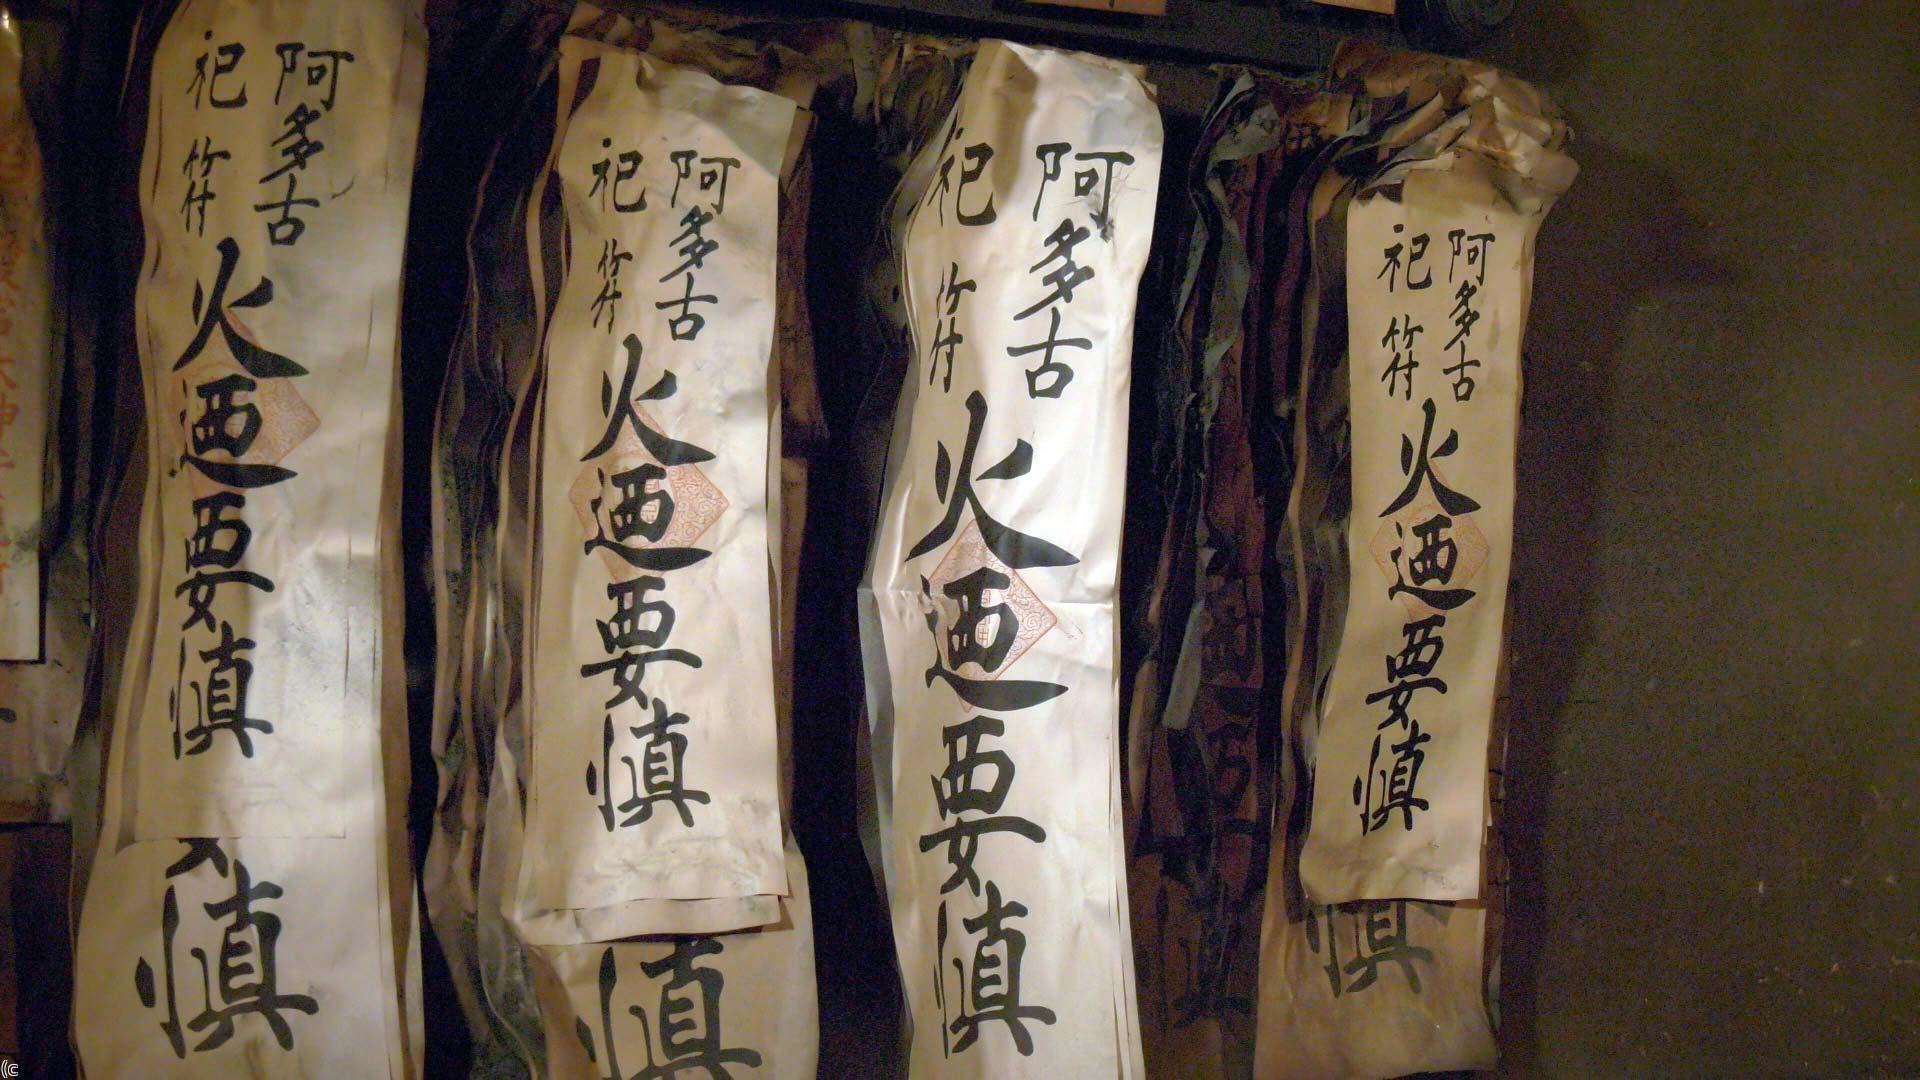 阿多古
祀符
火迺要慎
慎
阿多古
祀符
火迺要慎
慎
阿多古
祀符
火迺要慎
阿多古
祀符
火迺要慎
慎